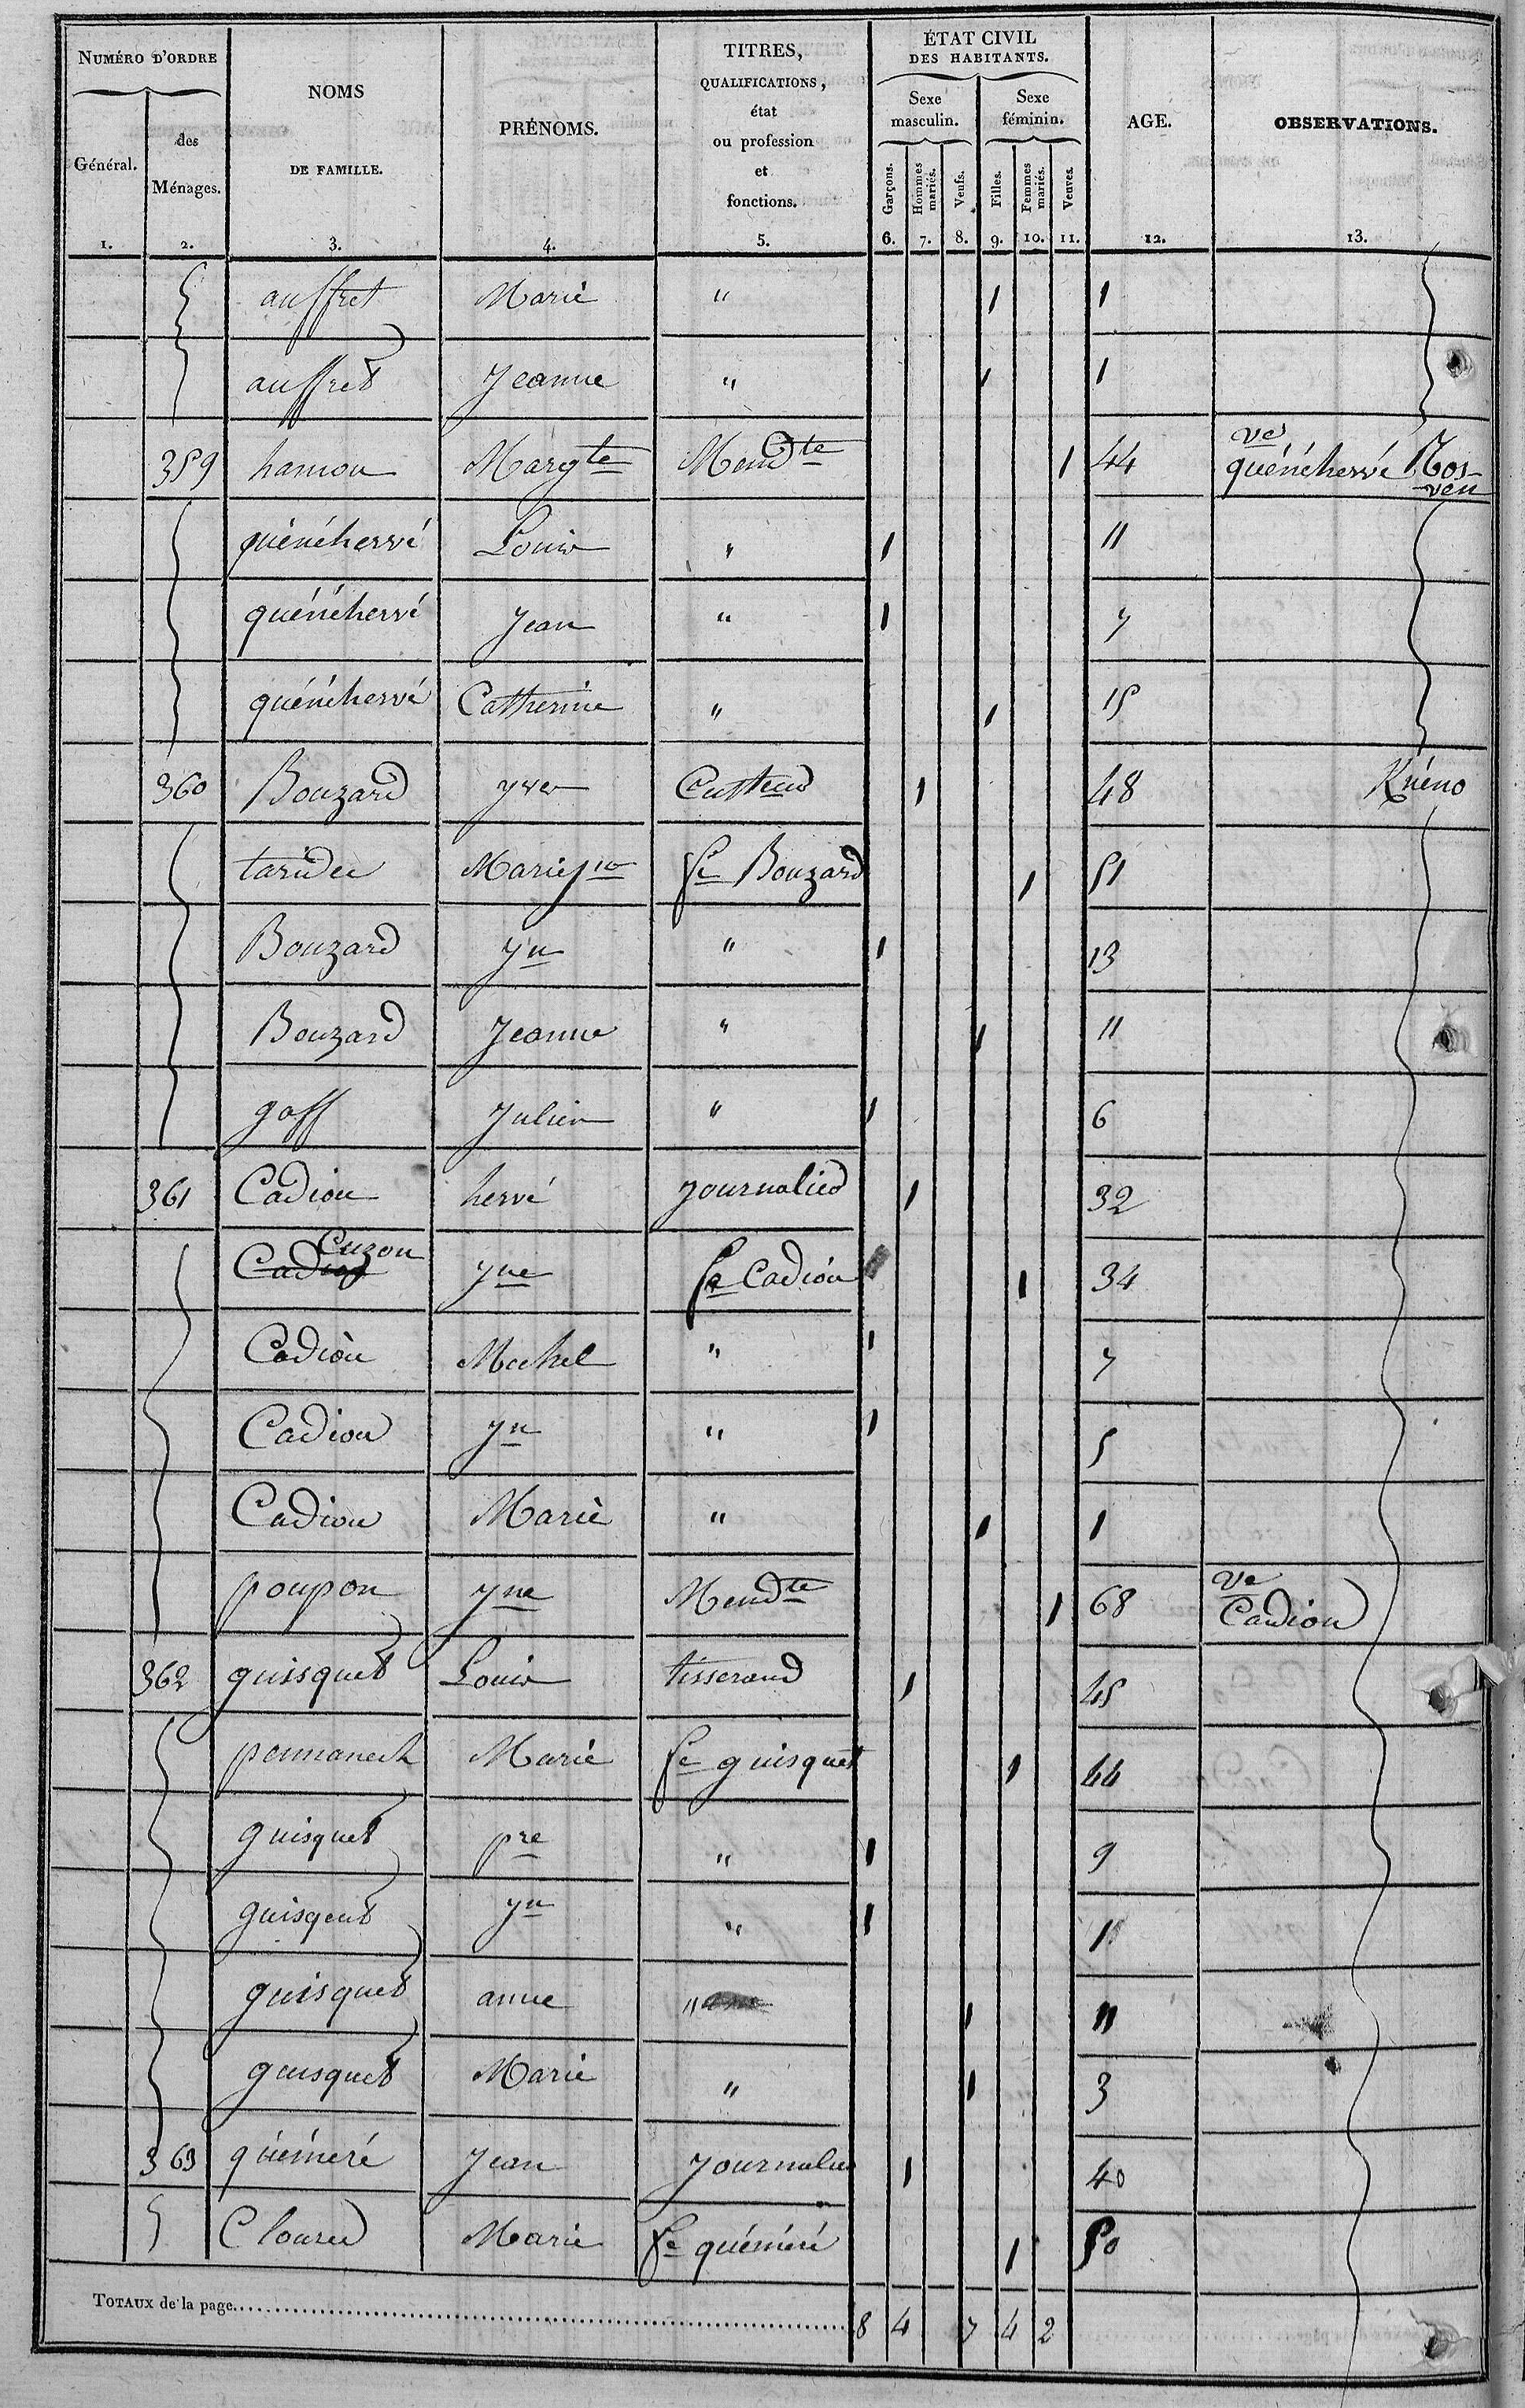 NUMÉRO D'ORDRE
Général.
des Ménages.
NOMS DE FAMILLE.
PRÉNOMS.
TITRES, QUALIFICATIONS, état ou profession et fonctions.
ÉTAT CIVIL DES HABITANTS.
Sexe masculin.
Sexe féminin.
Garçons.
Hommes mariés.
Veufs.
Filles.
Femmes mariés.
Veuves.
AGE.
OBSERVATIONS.
1. 2. 3. 4. 5. 6. 7. 8. 9. 10. 11. 12. 13.
auffret Marie " 1 1
auffret Jeanne " 1 1
359 hamon Margte Mendte 1 44 ve quénéhervé Rosven
quénéhervé Louis " 1 11
quénéhervé Jean " 1 7
quénéhervé Catherine " 1 15
360 Bouzard yves Cultteur 1 48 Knéno
taridec Marie fe Bouzard 1 51
Bouzard Jn " 1 13
Bouzard Jeanne " 1 11
goff Julien " 1 6
361 Cadiou hervé journalier 1 32
Cuzon Jne fe Cadiou 1 34
Cadiou Michel " 1 7
Cadiou Jn " 1 5
Cadiou Marie " 1 1
poupon Jne Mendte 1 68 Ve Cadiou
362 guisquet Louis tisserand 1 45
pennanech Marie fe guisquet 1 44
guisquet pre " 1 9
guisqeut Jn " 1
guisquet anne " 1 11
guisquet Marie " 1 3
363 quéméré Jean Journalier 1 40
Clourec Marie fe quéméré 1 50
TOTAUX de la page 8 4 7 4 2